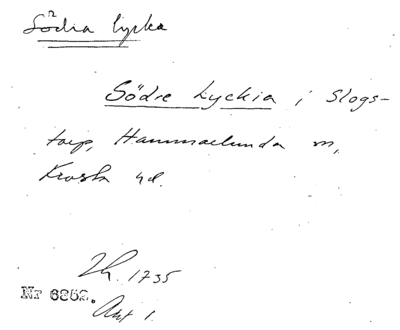 Södra lycka
Södre Lyckia i Slogs-
torp, Hammarlunda sn,
Frosta hd.
Lh. 1735
Nr 6852.
Akt 1.